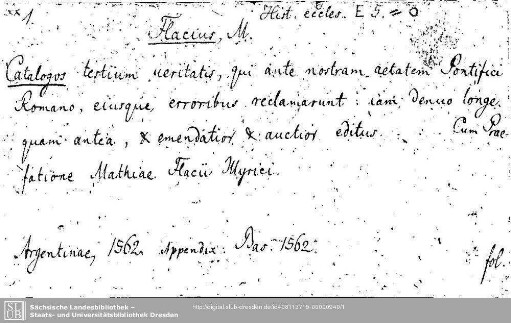 xx 1. Hist. eccles. E 5. = 0
Flacius, M.
Catalogus testium veritatis, qui ante nostram aetatem Pontifici
Romano, eiusque erroribus reclamarunt: iam denuo longe
quam antea, & emendatior & auctior editus. Cum Prae-
fatione Mathiae Flacii Illyrici.
Argentinae, 1562. Appendix. Bas. 1562.
fol.
Sächsische Landesbibliothek –
Staats- und Universitätsbibliothek Dresden